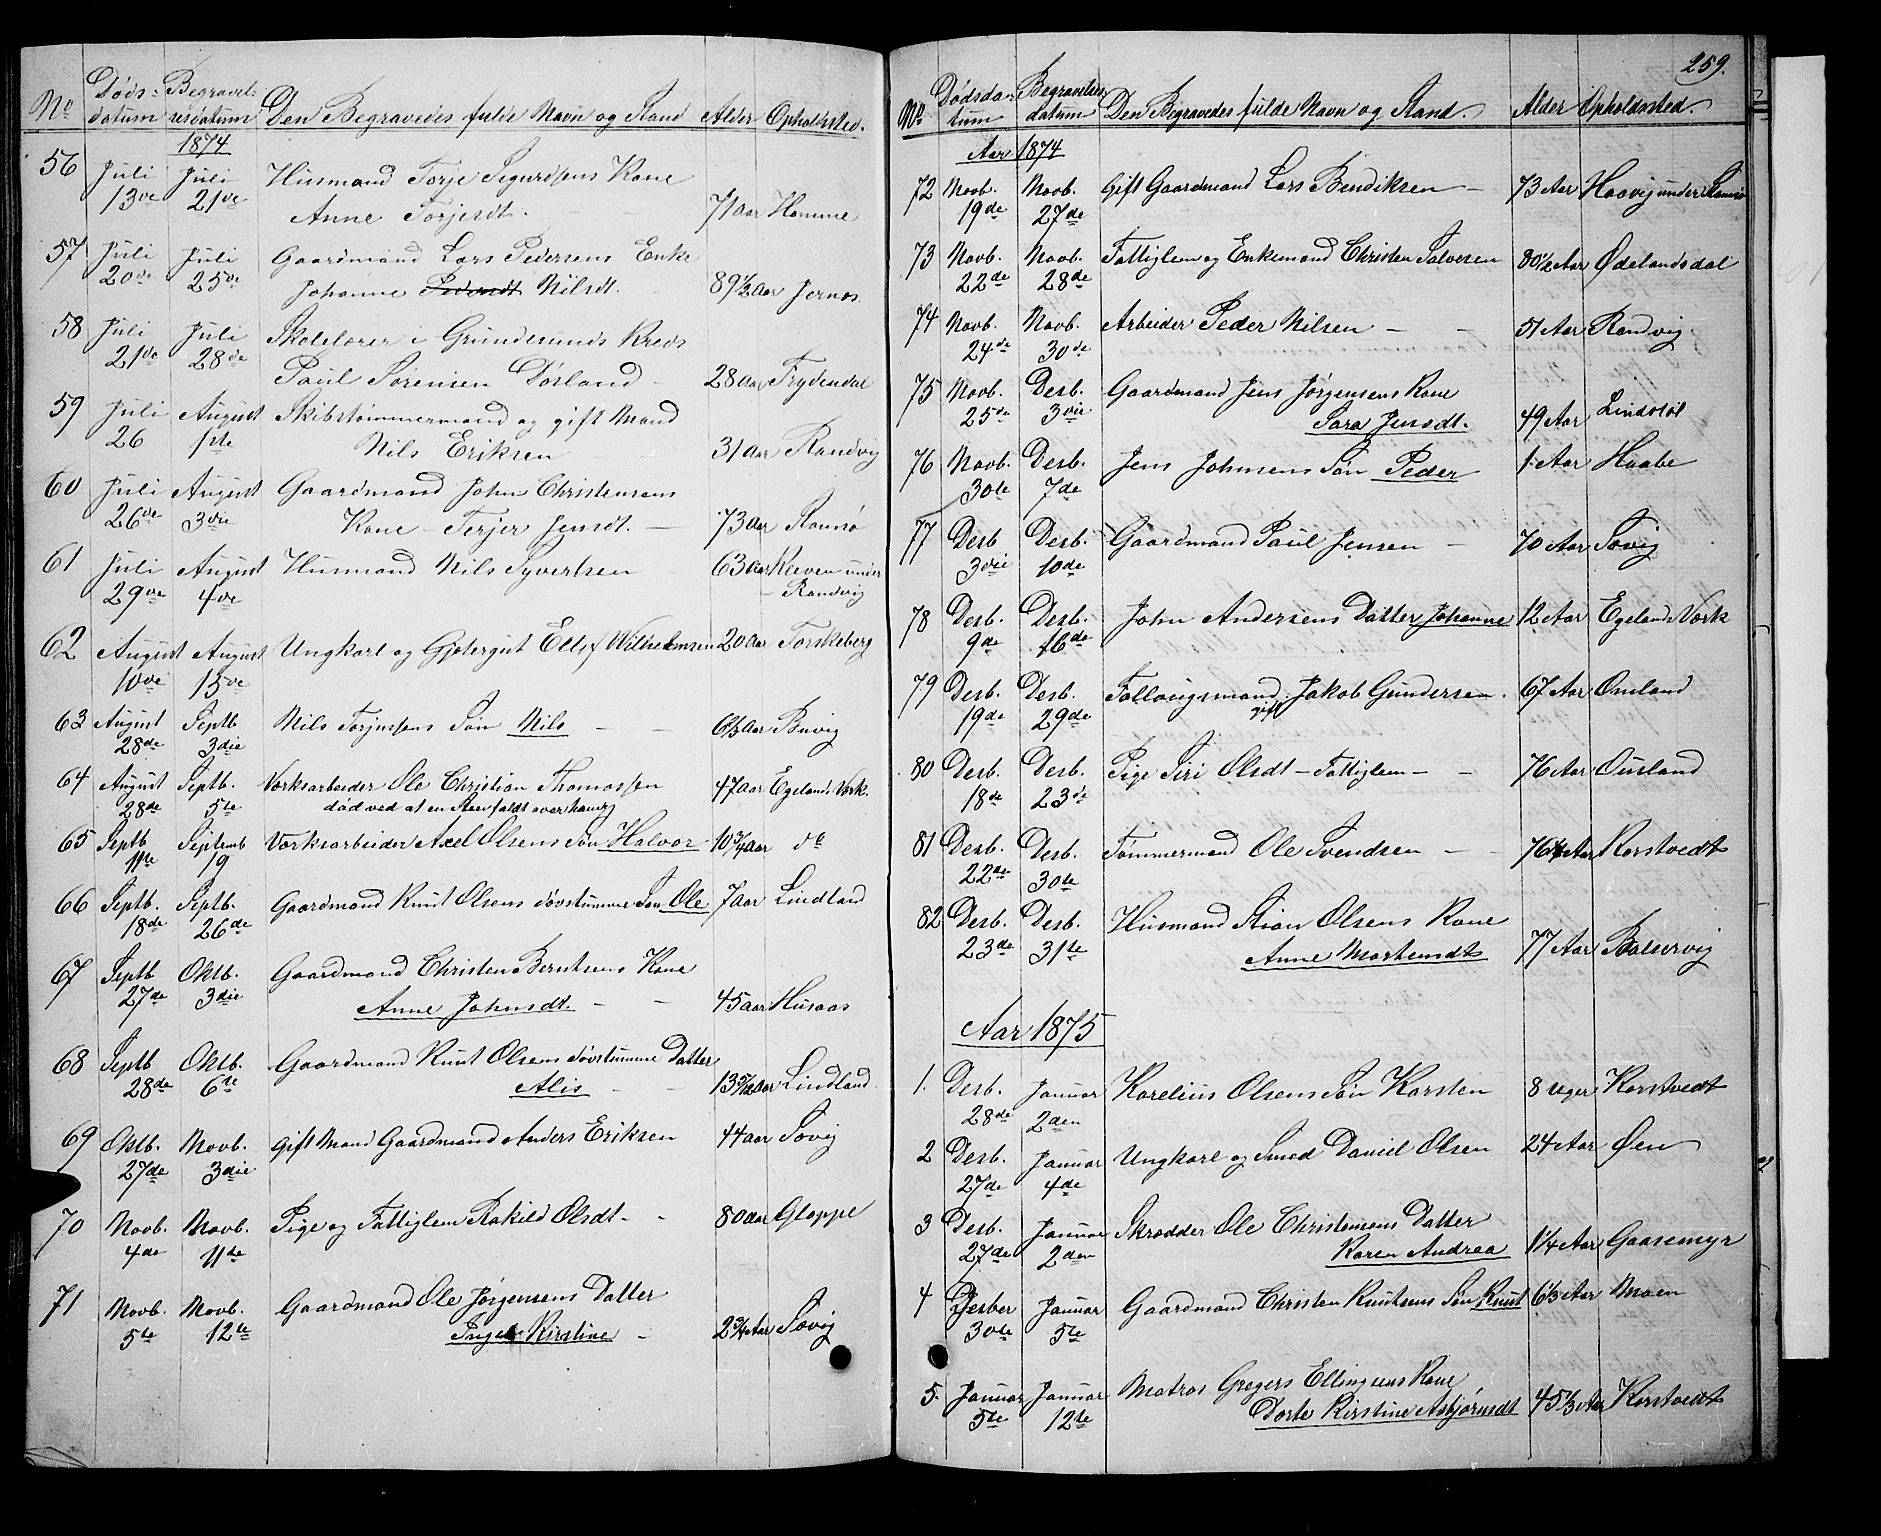 No Døds- Begravel-
datum sesdatum Den Begravedes fulde Navn og Stand Alder Opholdsted.
1874
56 Juli Juli Husmand Torje Sigurdsens Kone
13de 21de Anne Torjesdt. - - 71 Aar Homme
57 Juli Juli Gaardmand Lars Pedersens Enke
20de 25de Johanne Pedersdt Nilsdt. 89 1/2 Aar Jernæs
58 Juli Juli Skolelærer i Grundesunds Kreds
21de 28de Paul Sørensen Dørland - 28 Aar Frydendal
59 Juli August Skibstømmermand og gift Mand
26 1ste Nils Eriksen - - 31 Aar Randvig
60 Juli August Gaardmand John Christensens
26de 3die Kone - Terjer Jensdt. - 73 Aar Ramsø
61 Juli August Husmand Nils Syvertsen 63 Aar Reeven under
29de 4de - Randvig
62 August August Ungkarl og Gjætergut Ellef Wilhelmsen 20 Aar Torskeberg
10de 15de
63 August Septb Nils Torjussens Søn Nils - - 6 1/3 Aar Buvig
28de 3die
64 August Septb. Værksarbeider Ole Christian Thomassen 47 Aar Egelands Værk.
28de 5te død ved at en Steen faldt over ham
65 Septb Septemb Værksarbeider Axel Olsens Søn Halvor 10 3/4 Aar do
11te 19
66 Septb. Septb. Gaardmand Knut Olsens døvstumme Søn Ole 7 Aar Lindland
18de 26de
67 Septb Oktb. Gaardmand Christen Berntsens Kone
27de 3die Anne Johnsdt. - - 45 Aar Husaas
68 Septb Oktb. Gaardmand Knut Olsens døvstumme Datter
28de 6te Alis - - 13 5/12 Aar Lindland
69 Oktb. Novb. Gift Mand Gaardmand Anders Eriksen 44 Aar Søvig
27de 3die
70 Novb. Novb. Pige og Fattiglem Rakild Olsdt. - - 80 Aar Gloppe
4de 11te
71 Novb. Novb. Gaardmand Ole Jørgensens Datter
5te 12te Inger Kirstine - 2 3/4 Aar Søvig
259.
No Dødsda- Begravelses-
tum datum Den Begravedes fulde Navn og Stand. Alder Opholdssted.
Aar 1874
72 Novb. Novb. Gift Gaardmand Lars Bendiksen - 73 Aar Haavig under Ramsø
19de 27de
73 Novb. Novb. Fattiglem og Enkemand Christen Salvesen 80 1/2 Aar Ødelandsdal
22de 28de
74 Novb. Novb. Arbeider Peder Nilsen - - 51 Aar Randvig
24de 30de
75 Novb. Desb. Gaardmand Jens Jørgensens Kone
25de 3die Sara Jensdt. 49 Aar Lindstøl
76 Novb. Desb. Jens Johnsens Søn Peder 1 Aar Haabe
30te 7de
77 Desb Desb. Gaardmand Paul Jensen - 70 Aar Søvig
3die 10de
78 Desb. Desb. John Andersens Datter Johanne 12 Aar Egelands Værk
9de 16de
79 Desb. Desb. Føllougsmand Jakob Gundersen. 67 Aar Omland
19de 29de gift
80 Desb. Desb. Pige Siri Olsdt - Fattiglem - - 76 Aar Omland
18de 23de
81 Desb. Desb. Tømmermand Ole Svendsen - - 76 1/4 Aar Korstvedt
22de 30te
82 Desb. Desb. Husmand Stian Olsens Kone
23de 31te Anne Mortensdt 77 Aar Balservig
Aar 1875
1. Desb. Januar Karelius Olsens Søn Karsten 8 Uger Korstvedt
28de 2den
2 Desb. Januar Ungkarl og Smed Daniel Olsen 24 Aar Øen
27de 4de
3 Desb. Januar Skrædder Ole Christensens Datter
27de 2den Karen Andrea 1 1/4 Aar Gaasemyr
4 Desber Januar Gaardmand Christen Knutsens Søn Knut 6 1/3 Aar Moen
30te 5te
5. Januar Januar Matros Gregers Ellingsens Kone
5te 12te Dorte Kirstine Asbjørnsdt 45 1/3 Aar Korstvedt